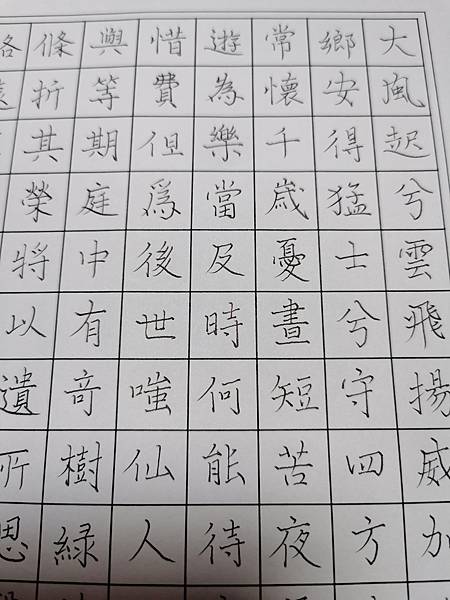 大風起兮雲飛揚威加
鄉安得猛士兮守四方
常懷千歲憂晝短苦夜
遊為樂當及時何能待
惜費但爲後世嗤仙人
與等期庭中有奇樹綠
條折其榮將以遺所思